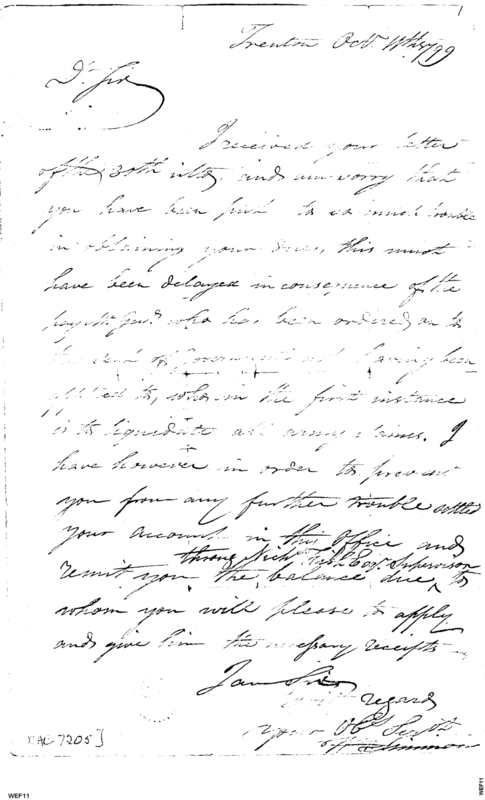 Trenton Octr. 11th 1799
Dr. Sir
I received your letter
of the 30th ulto, and am sorry that
you have been put to so much trouble
in obtaining your dues, this must
have been delayed in consequence of the
pay Mr. Genl. who has been ordered on to
the seat of Government not having been
applied to, who in the first instance
is to liquidate all army claims. I
have however in order to prevent
you from any further trouble settled
your account in this Office and
throug Nichs. Fish Esqr. Supervisor
remit you the balance due, to
whom you will please to apply
and give him the necessary receipts
I am Sir
regard
your Obt. Servt.
Simmons
[AC 7205]
WEF11
WEF11